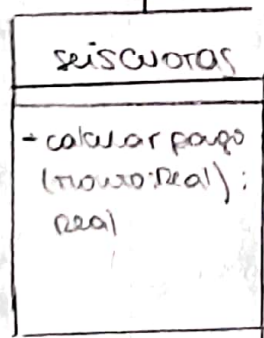 seiscuotas
+ calcular pago
(monto:Real):
Real